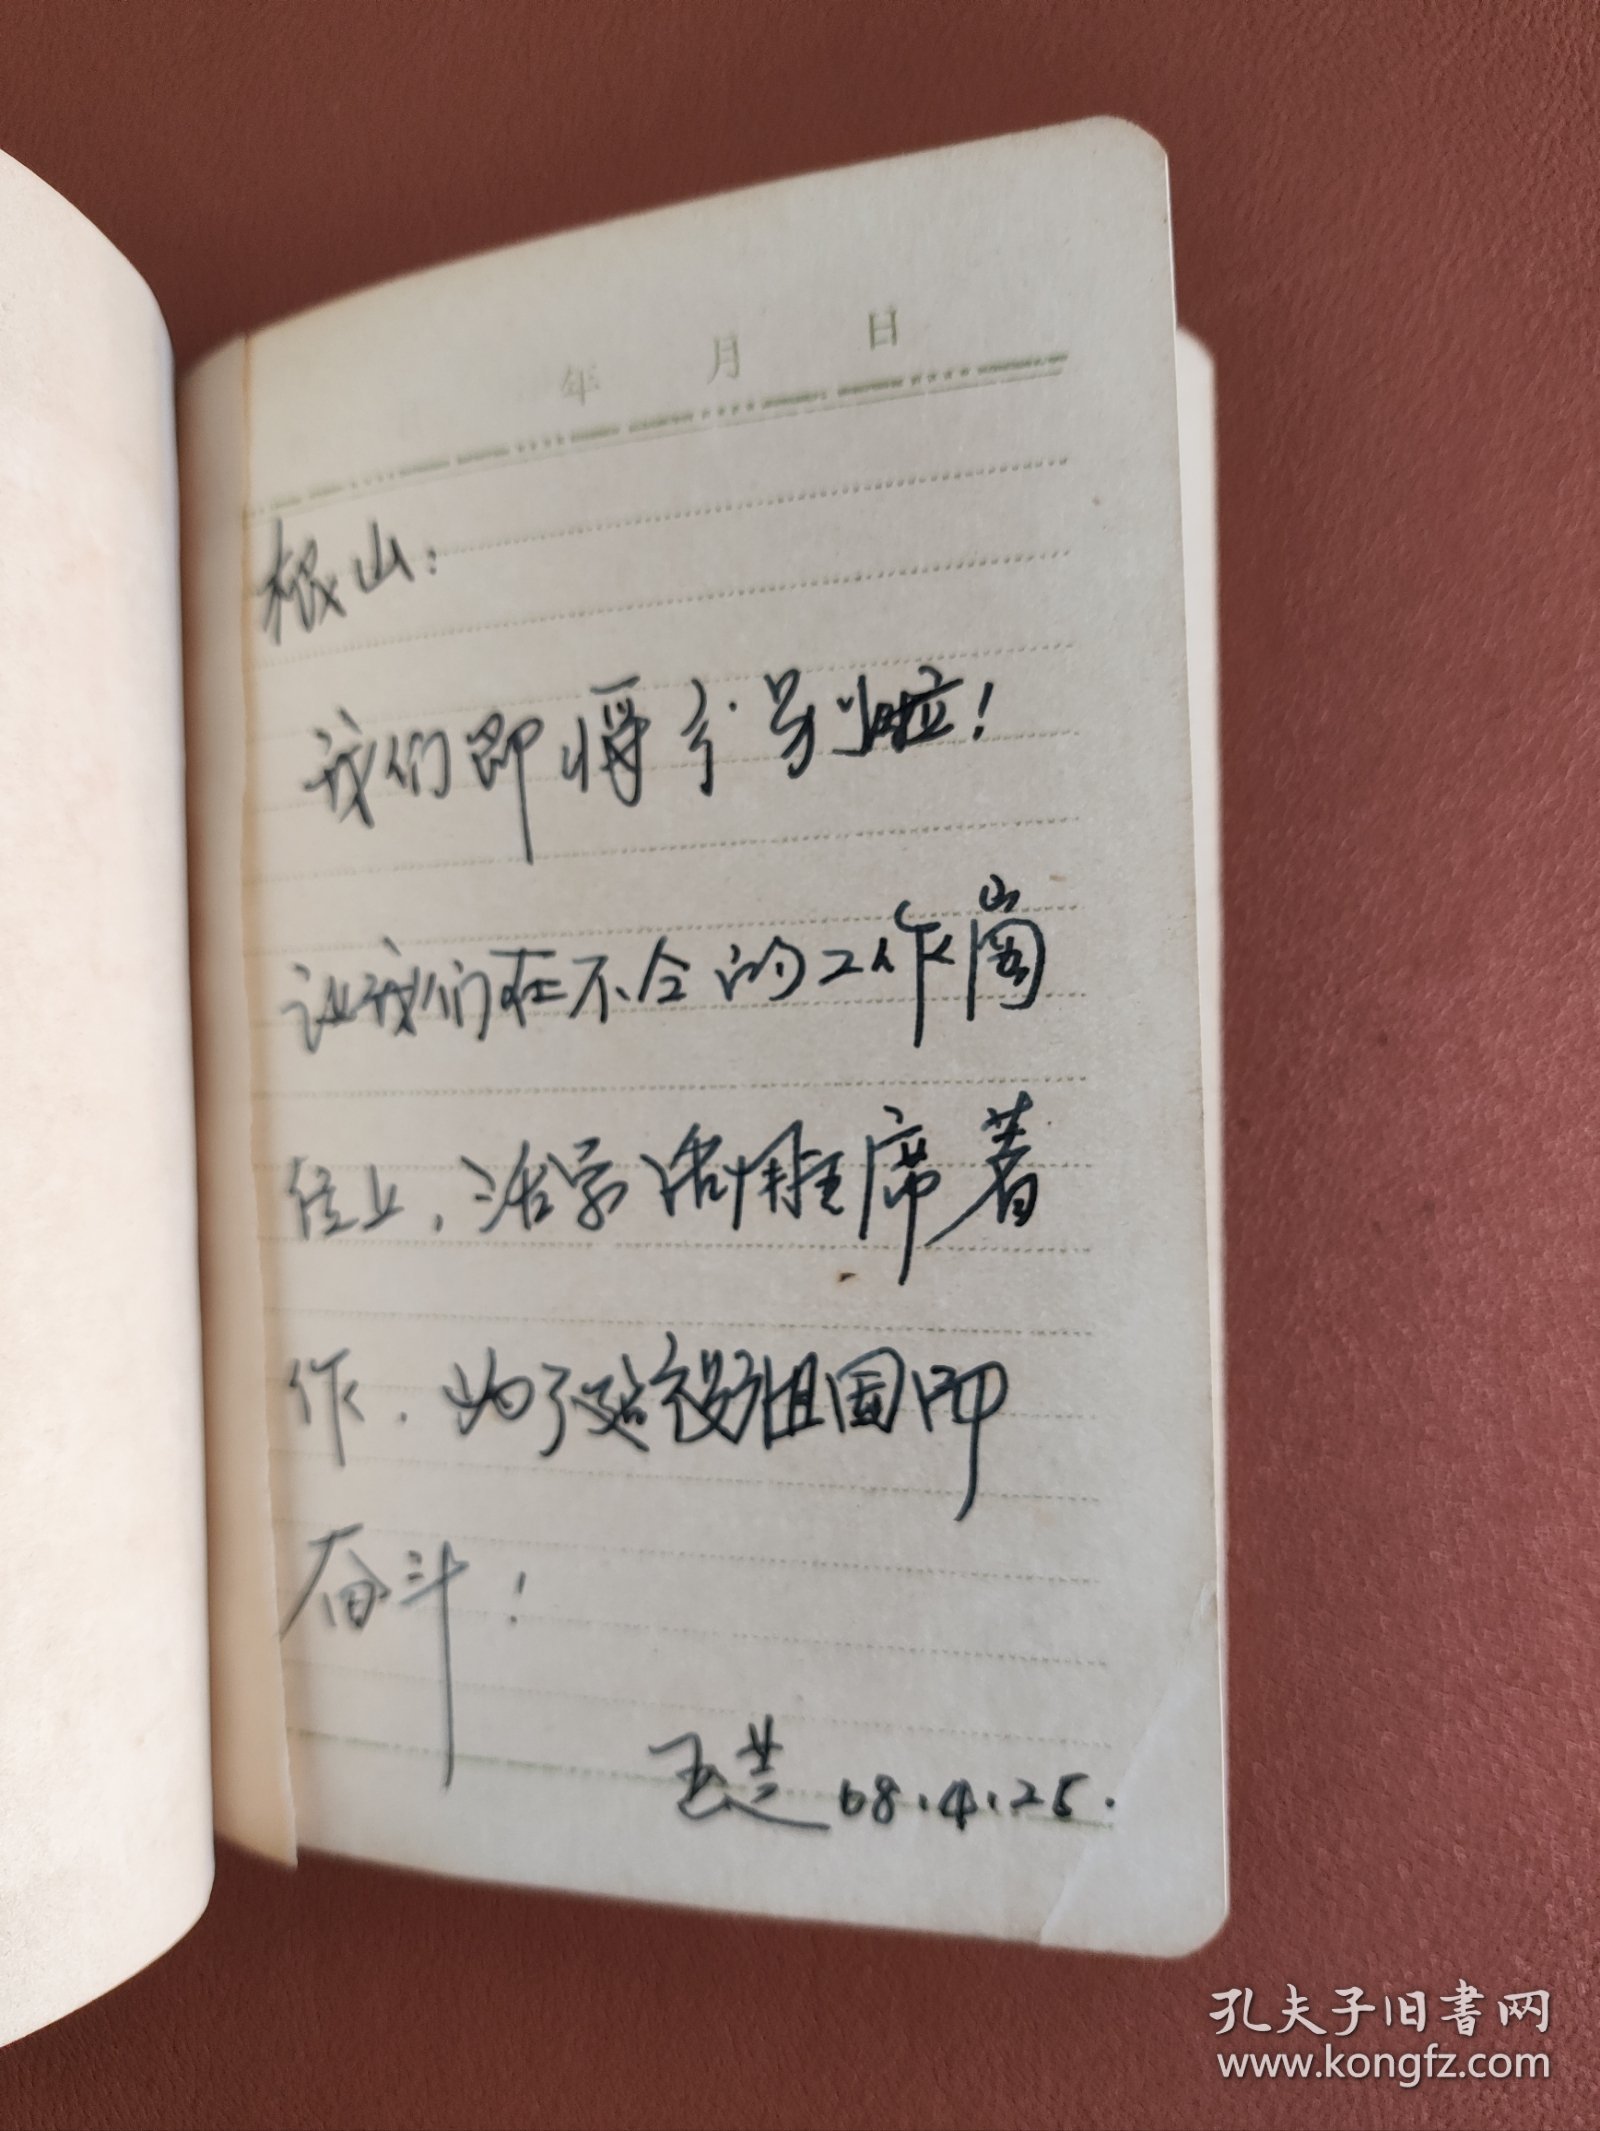 年 月 日
根山：
我们即将分别啦！
让我们在不仝的工作岗
位上，活学活用主席著
作，为了建设祖国而
奋斗！
玉芝 68.4.25.
孔夫子旧书网
www.kongfz.com